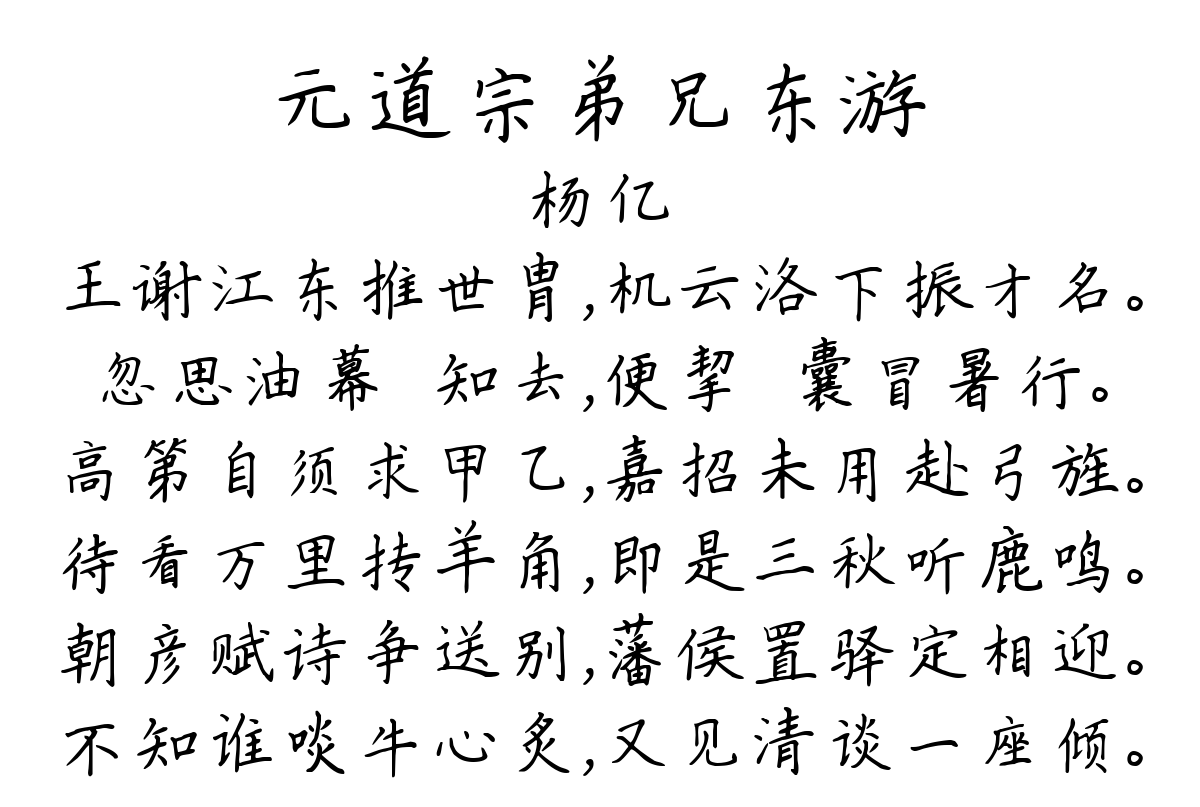 元道宗弟兄东游
杨亿
王谢江东推世胄,机云洛下振才名。
忽思油幕 知去,便挈 囊冒暑行。
高第自须求甲乙,嘉招未用赴弓旌。
待看万里抟羊角,即是三秋听鹿鸣。
朝彦赋诗争送别,藩侯置驿定相迎。
不知谁啖牛心炙,又见清谈一座倾。